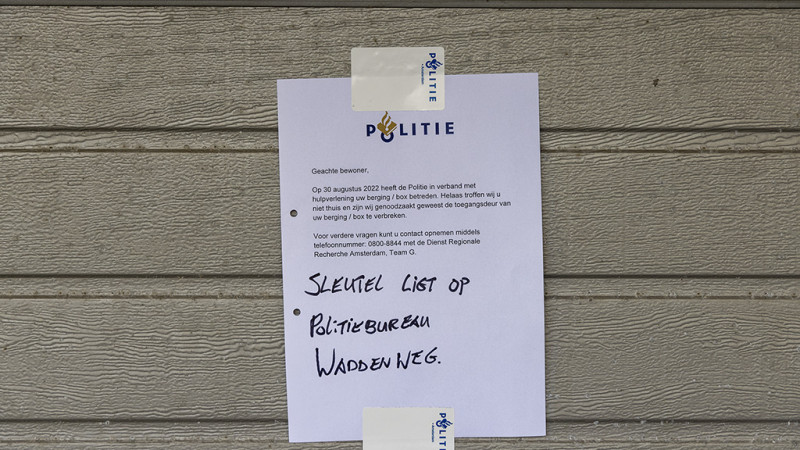 POLITIE
POLITIE
Geachte bewoner,
Op 30 augustus 2022 heeft de Politie in verband met
hulpverlening uw berging / box betreden. Helaas troffen wij u
niet thuis en zijn wij genoodzaakt geweest de toegangsdeur van
uw berging / box te verbreken.
Voor verdere vragen kunt u contact opnemen middels
telefoonnummer: 0800-8844 met de Dienst Regionale
Recherche Amsterdam, Team G.
SLEUTEL LIGT OP
POLITIEBUREAU
WADDENWEG.
POLITIE